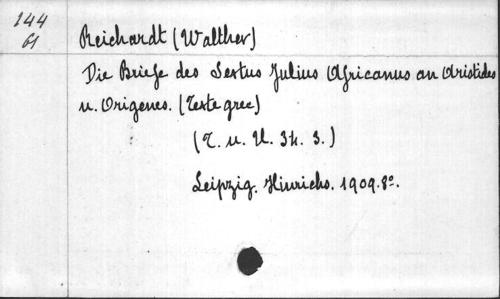 144
61
Reichardt (Walther)
Die Briefe des Sextus Julius Africanus an Aristides
u. Origenes. (Texte grec)
(T. u. U. 34. 3.)
Leipzig. Hinrichs. 1909. 8º.